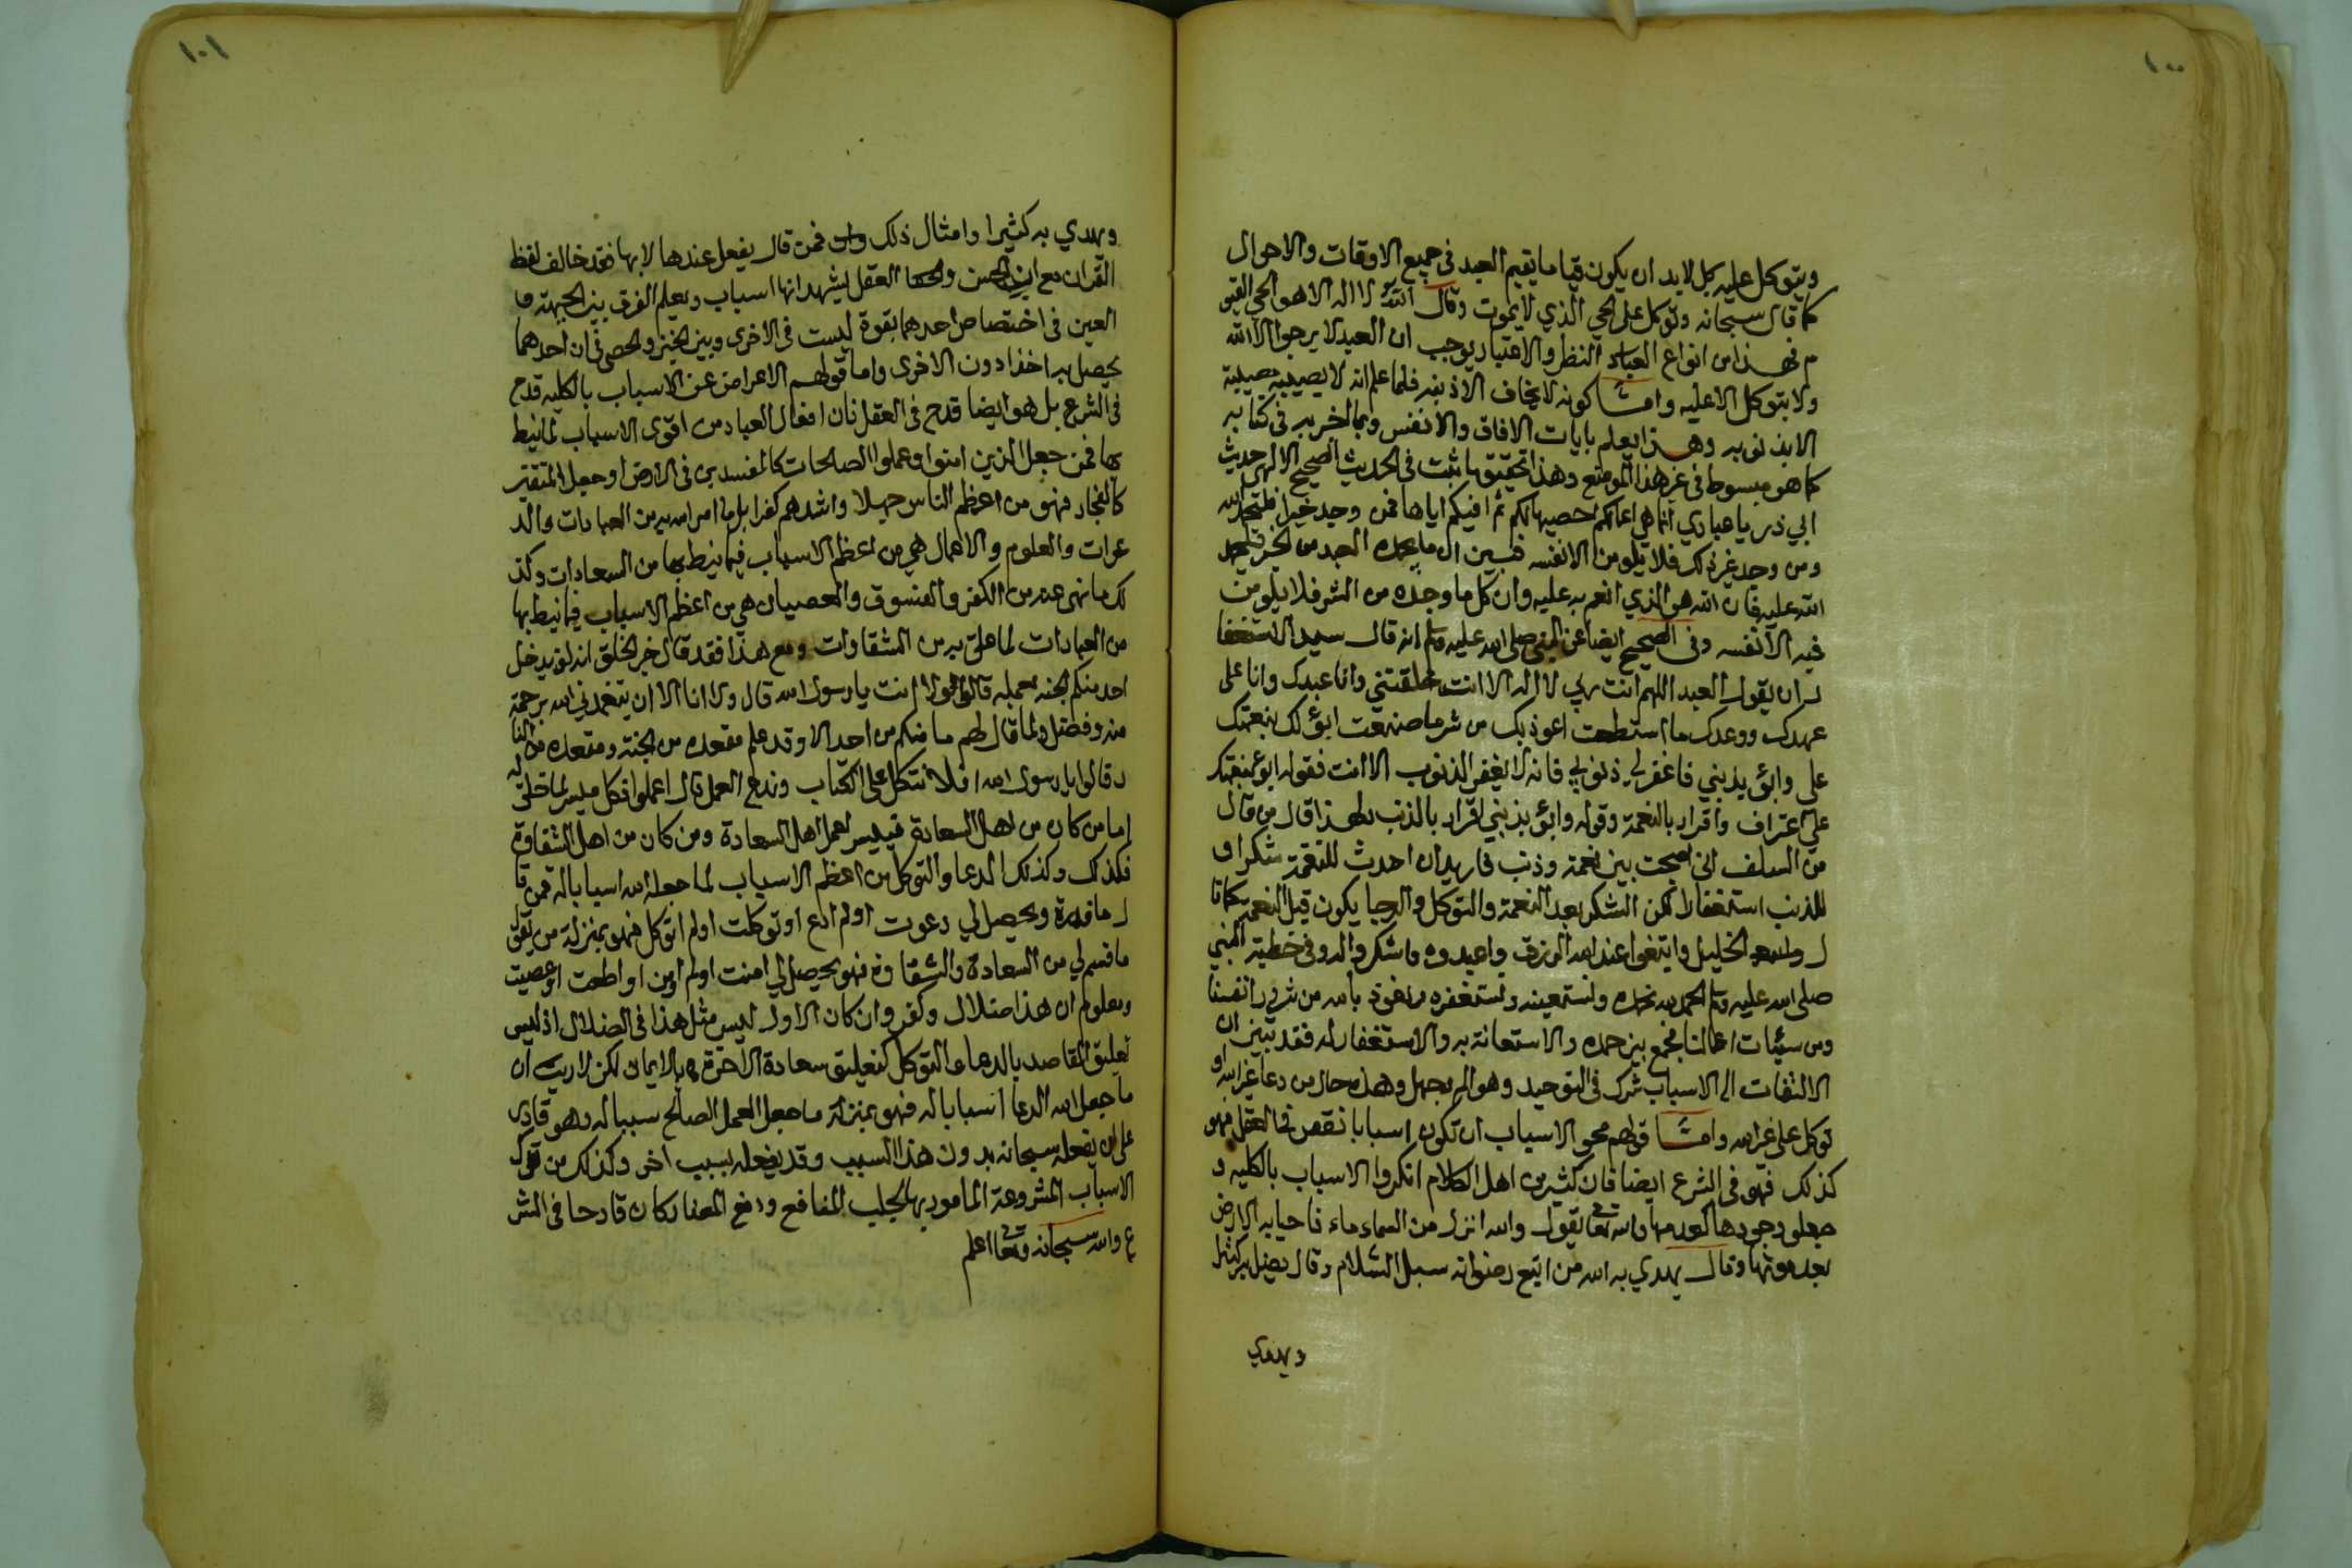 ١٠٠
ويتوكل عليه بل لابد ان يكون قيا ما يقيم العبد في جميع الاوقات والاحوال
كما قال سبحانه وتوكل على الحي الذي لا يموت وقال الله لا اله الا هو الحي القيو
م فهذا من انواع العباد النظر والاعتبار يوجب ان العبد لا يرجو الا الله
ولا يتوكل الا عليه واما كونه لا يخاف الا ذنبه فلما علم انه لا يصيبه مصيبة
الا بذنوبه وهذا يعلم بايات الافاق والانفس وبما اخبر به في كتابه
كما هو مبسوط في غير هذا الموضع وهذا تحقيق ما ثبت في الحديث الصحيح الالهي حديث
ابي ذر يا عبادي انما هي اعمالكم احصيها لكم ثم افيكم اياها فمن وجد خيرا فليحمد الله
ومن وجد غير ذلك فلا يلومن الا نفسه فبين ان ما يجده العبد من الخير فليحمد
الله عليه فان الله هو الذي انعم به عليه وان كل ما وجده من الشر فلا يلومن
فيه الا نفسه وفي الصحيح ايضا عن النبي صلى الله عليه وسلم انه قال سيد الاستغفا
ر ان يقول العبد اللهم انت ربي لا اله الا انت خلقتني وانا عبدك وانا على
عهدك ووعدك ما استطعت اعوذ بك من شر ما صنعت ابؤ لك بنعمتك
علي وابؤ بذنبي فاغفر لي ذنوبي فانه لا يغفر الذنوب الا انت فقوله ابوء بنعمتك
علي اعتراف واقرار بالنعمة وقوله وابؤ بذنبي اقرار بالذنب ولهذا قال من قال
من السلف اني اصبحت بين نعمة وذنب فاريد ان احدث للنعمة شكرا و
للذنب استغفارا لكن الشكر بعد النعمة والتوكل والرجا يكون قبل النعمة كما قا
ل الخليل وابتغوا عند الله الرزق واعبدوه واشكروا له وفي خطبة النبي
صلى الله عليه وسلم الحمد لله نحمده ونستعينه ونستغفره ونعوذ بالله من شرور انفسنا
ومن سيئات اعمالنا فجمع بين حمده والاستعانة به والاستغفار له فقد تبين ان
الالتفات الى الاسباب شرك في التوحيد وهو ظلم وجهل وهذه حال من دعا غير الله او
توكل على غير الله واما قولهم محو الاسباب ان تكون اسبابا نقص في العقل فهو
كذلك فهو في الشرع ايضا فان كثير من اهل الكلام انكروا الاسباب بالكليه و
جعلو وجودها كعدمها والله تعا يقول والله انزل من السماء ماء فاحيا به الارض
بعد موتها وقال يهدي به الله من اتبع رضوانه سبل السلام وقال يضل به كثيرا
ويهدي
١٠١
ويهدي به كثيرا وامثال ذلك فمن قال يفعل عندها لا بها فقد خالف لفظ
القران مع ان الحس والعقل يشهد انها اسباب ويعلم الفرق بين الجبهة وا
العين في اختصاص احدهما بقوة ليست في الاخرى وبين الخبز والحصى في ان احدهما
يحصل به اغذا دون الاخرى واما قولهم الاعراض عن الاسباب بالكليه قدح
في الشرع بل هو ايضا قدح في العقل فان افعال العباد من اقوى الاسباب لما نيط
بها فمن جعل الذين امنوا وعملوا الصالحات كالمفسدين في الارض او جعل المتقين
كالفجار فهو من اعظم الناس جهلا واشدهم كفرا بل ما امر الله به من العبادات والد
عوات والعلوم والاعمال هي من اعظم الاسباب فيما نيط بها من السعادات وكذ
لك ما نهى عنه من الكفر والفسوق والعصيان هي من اعظم الاسباب فيما نيط بها
من العبادات لما علق به من الشقاوات ومع هذا فقد قال خير الخلق انه لن يدخل
احد منكم الجنه بعمله قالوا ولا انت يا رسول الله قال ولا انا الا ان يتغمدني الله برحمة
منه وفضل ولما قال لهم ما منكم من احد الا وقد علم مقعده من الجنة ومقعده من النا
ر قالوا يا رسول الله افلا نتكل على الكتاب وندع العمل قال اعملوا فكل ميسر لما خلق له
اما من كان من اهل السعادة فييسر لعمل اهل السعادة ومن كان من اهل الشقاوة
فكذلك وكذلك الدعا والتوكل من اعظم الاسباب لما جعله الله اسبابا له فمن قا
ل ما قدر ويحصل لي دعوت اولم ادع او توكلت اولم اتوكل فهو بمنزلة من يقول
ما قسم لي من السعادة والشقاوة فهو يحصل لي امنت اولم اومن او اطعت او عصيت
ومعلوم ان هذا ضلال وكفر وان كان الاول ليس مثل هذا في الضلال اذ ليس
تعليق المقاصد بالدعا والتوكل كتعليق سعادة الاخرة بالايمان لكن لا ريب ان
ما جعل الله الدعا اسبابا له فهو بمنزلة ما جعل العمل الصالح سببا له وهو قادر
على ان يفعله سبحانه بدون هذا السبب وقد يفعله بسبب اخر وكذلك من ترك
الاسباب المشروعة المامور بها لجلب المنافع ودفع المضار كان قادحا في الشر
ع والله سبحانه وتعا اعلم